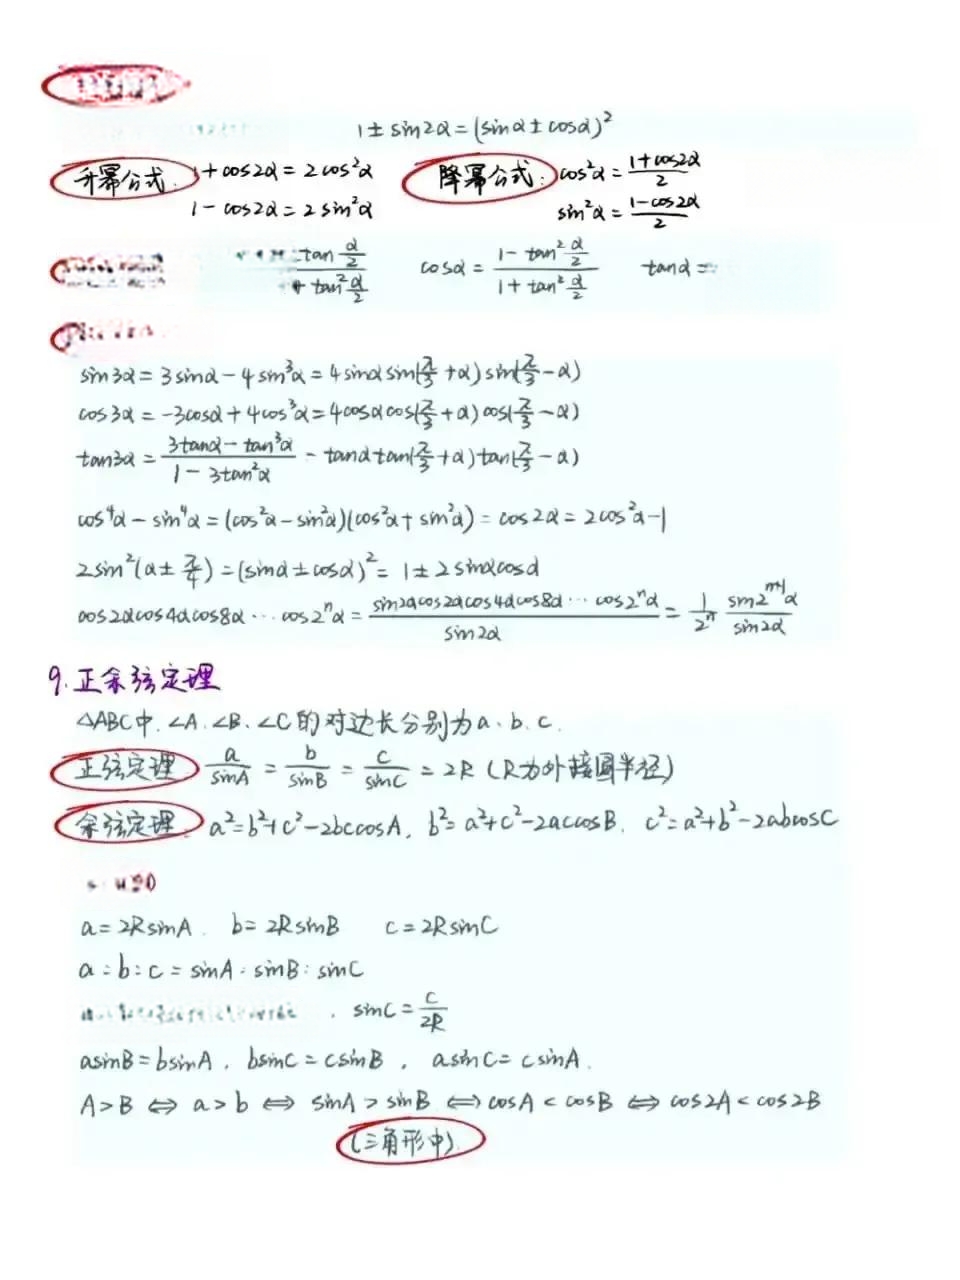 1±sin2α=(sinα±cosα)²
升幂公式: 1+cos2α=2cos²α 降幂公式: cos²α=(1+cos2α)/2
1-cos2α=2sin²α sin²α=(1-cos2α)/2
tan(α/2) / + tan²(α/2) cosα=(1-tan²(α/2))/(1+tan²(α/2)) tanα=
sin3α=3sinα-4sin³α=4sinαsin(π/3+α)sin(π/3-α)
cos3α=-3cosα+4cos³α=4cosαcos(π/3+α)cos(π/3-α)
tan3α=(3tanα-tan³α)/(1-3tan²α)-tanαtan(π/3+α)tan(π/3-α)
cos⁴α-sin⁴α=(cos²α-sin²α)(cos²α+sin²α)=cos2α=2cos²α-1
2sin²(α±π/4)=(sinα±cosα)²=1±2sinαcosα
cos2αcos4αcos8α⋯cos2ⁿα=(sin2αcos2αcos4αcos8α⋯cos2ⁿα)/(sin2α)=(1/2ⁿ)(sin2ⁿ⁺¹α/sin2α)
9.正余弦定理
△ABC中.∠A.∠B.∠C的对边长分别为a.b.c.
正弦定理: a/sinA=b/sinB=c/sinC=2R(R为外接圆半径)
余弦定理: a²=b²+c²-2bccosA, b²=a²+c²-2accosB, c²=a²+b²-2abcosC
a=2RsinA. b=2RsinB c=2RsinC
a:b:c=sinA:sinB:sinC
, sinC=c/2R
asinB=bsinA, bsinC=csinB, asinC=csinA.
A>B⇔a>b⇔sinA>sinB⇔cosA<cosB⇔cos2A<cos2B
(三角形中)